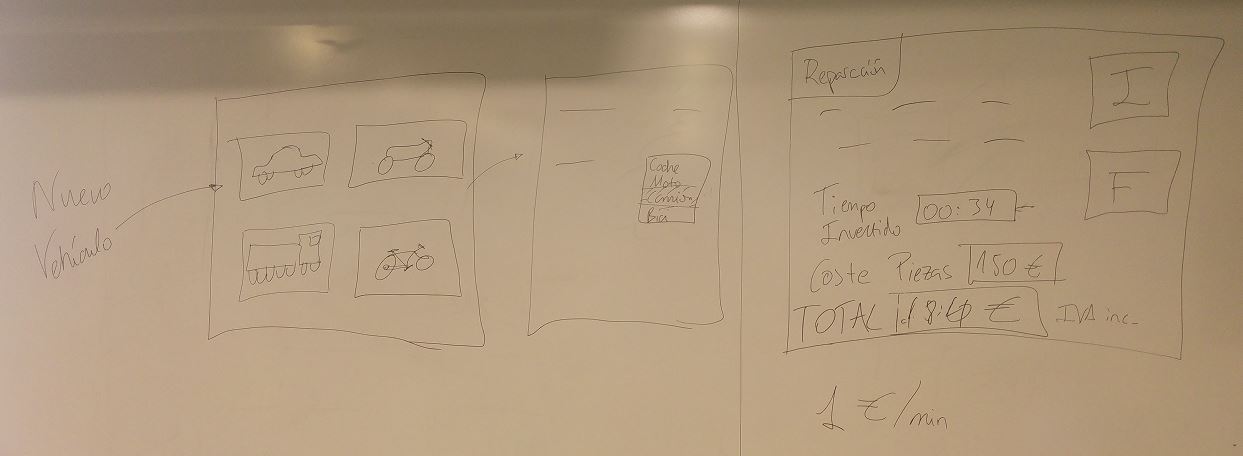 Nuevo
Vehículo
Coche
Moto
Camión
Bici
Reparación
I
F
Tiempo
Invertido
00:34
Coste Piezas 150 €
TOTAL 184 €
IVA inc.
1 €/min